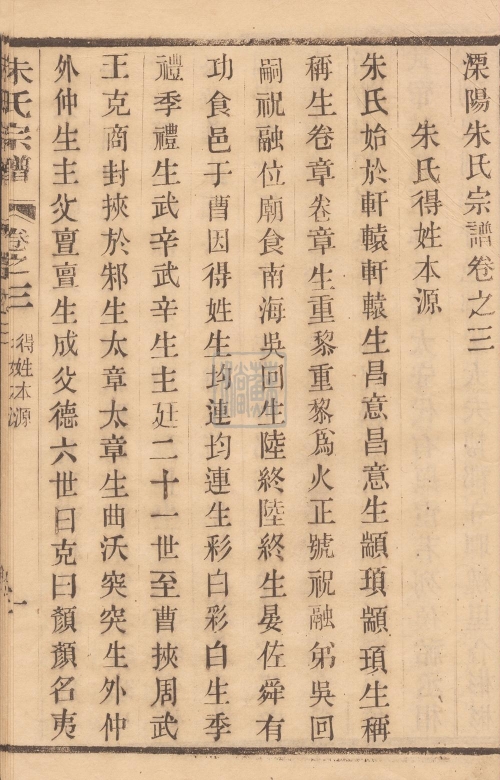 溧陽朱氏宗譜卷之三
朱氏得姓本源
朱氏始於軒轅軒轅生昌意昌意生顓頊顓頊生稱
稱生卷章卷章生重黎重黎爲火正號祝融弟吳回
嗣祝融位廟食南海吳回生陸終陸終生晏佐舜有
功食邑于曹因得姓生均連均連生彩白彩白生季
禮季禮生武辛武辛生主廷二十一世至曹挾周武
王克商封挾於邾生太章太章生曲沃突突生外仲
外仲生主父亶亶生成父德六世曰克曰顏顏名夷
朱氏宗譜 卷之三 得姓本源